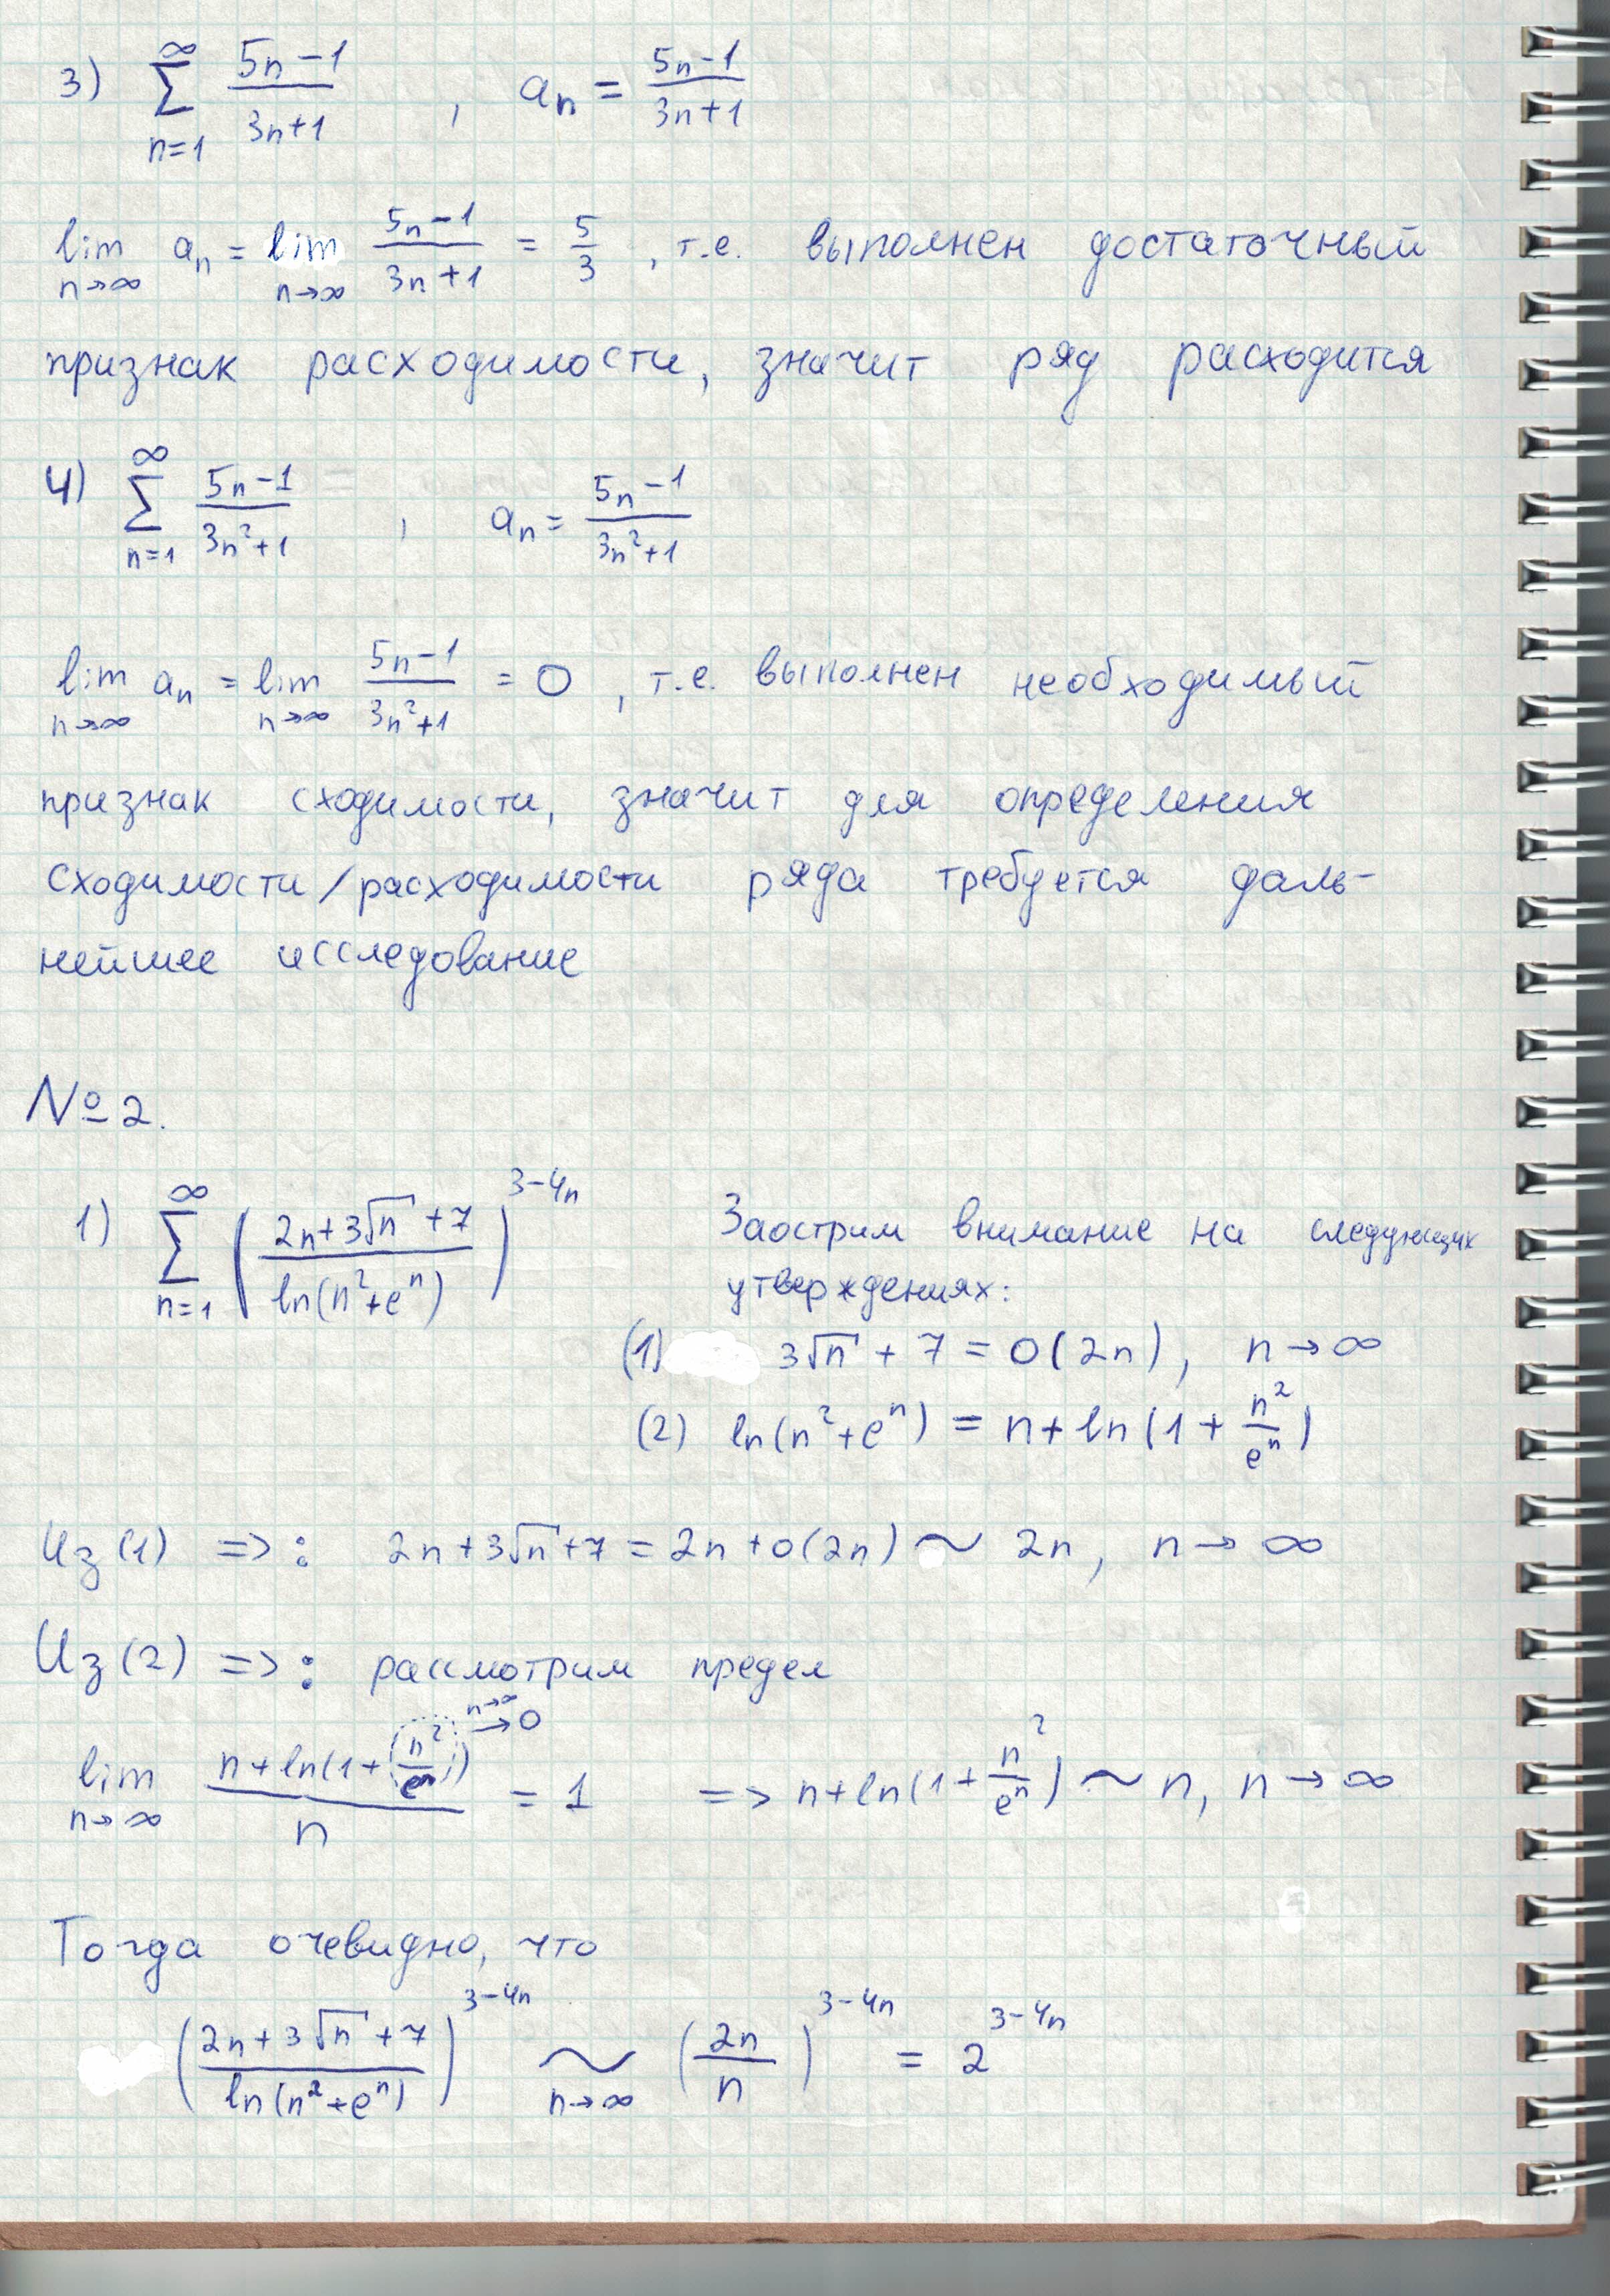 3) ∑_{n=1}^{∞} (5n-1)/(3n+1) , a_n = (5n-1)/(3n+1)
lim_{n→∞} a_n = lim_{n→∞} (5n-1)/(3n+1) = 5/3 , т.е. выполнен достаточный
признак расходимости, значит ряд расходится
4) ∑_{n=1}^{∞} (5n-1)/(3n²+1) , a_n = (5n-1)/(3n²+1)
lim_{n→∞} a_n = lim_{n→∞} (5n-1)/(3n²+1) = 0 , т.е. выполнен необходимый
признак сходимости, значит для определения
сходимости/расходимости ряда требуется даль-
нейшее исследование
№2.
1) ∑_{n=1}^{∞} ((2n+3√n+7)/(ln(n²+e^n)))^{3-4n}
Заострим внимание на следующих
утверждениях:
(1) 3√n + 7 = o(2n), n→∞
(2) ln(n²+e^n) = n+ln(1+n²/e^n)
Из (1) =>: 2n+3√n+7 = 2n+o(2n) ~ 2n, n→∞
Из (2) =>: рассмотрим предел
lim_{n→∞} (n+ln(1+n²/e^n))/n = 1 => n+ln(1+n²/e^n) ~ n, n→∞
n→∞ → 0
Тогда очевидно, что
((2n+3√n+7)/(ln(n²+e^n)))^{3-4n} ~_{n→∞} (2n/n)^{3-4n} = 2^{3-4n}